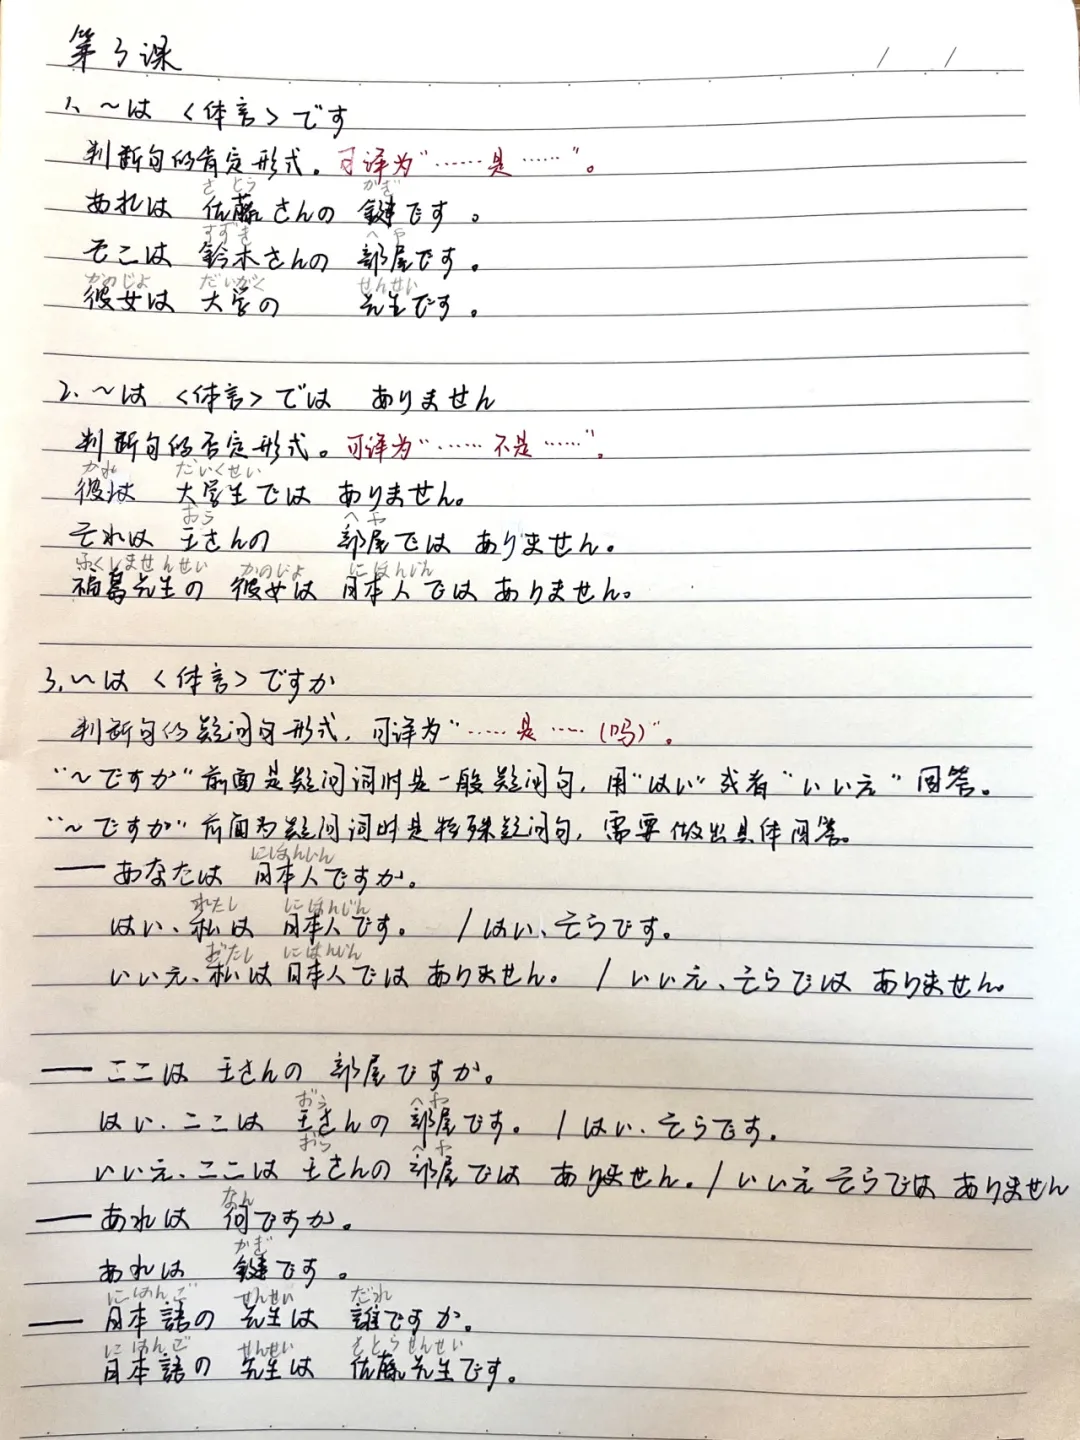 第3课
/ /
1、～は〈体言〉です
判断句的肯定形式。可译为"……是……"。
さとう かぎ
あれは 佐藤さんの 鍵です。
すずき へや
そこは 鈴木さんの 部屋です。
かのじょ だいがく せんせい
彼女は 大学の 先生です。
2、～は〈体言〉では ありません
判断句的否定形式。可译为"……不是……"。
かれ だいくせい
彼は 大学生では ありません。
おう へや
それは 王さんの 部屋では ありません。
ふくしませんせい かのじょ にほんじん
先生の 彼女は 日本人では ありません。
3、～は〈体言〉ですか
判断句的疑问句形式，可译为"……是……(吗)"。
"～ですか"前面是疑问词时是一般疑问句，用"はい"或者"いいえ"回答。
"～ですか"前面为疑问词时是特殊疑问句，需要做出具体回答。
にほんじん
—— あなたは 日本人ですか。
わたし にほんじん
はい、私は 日本人です。 / はい、そうです。
わたし にほんじん
いいえ、私は 日本人では ありません。 / いいえ、そうでは ありません。
—— ここは 王さんの 部屋ですか。
おう へや
はい、ここは 王さんの 部屋です。 / はい、そうです。
おう へや
いいえ、ここは 王さんの 部屋では ありません。/ いいえ そうでは ありません
なん
—— あれは 何ですか。
かぎ
あれは 鍵です。
にほんご せんせい だれ
—— 日本語の 先生は 誰ですか。
にほんご せんせい さとうせんせい
日本語の 先生は 佐藤先生です。